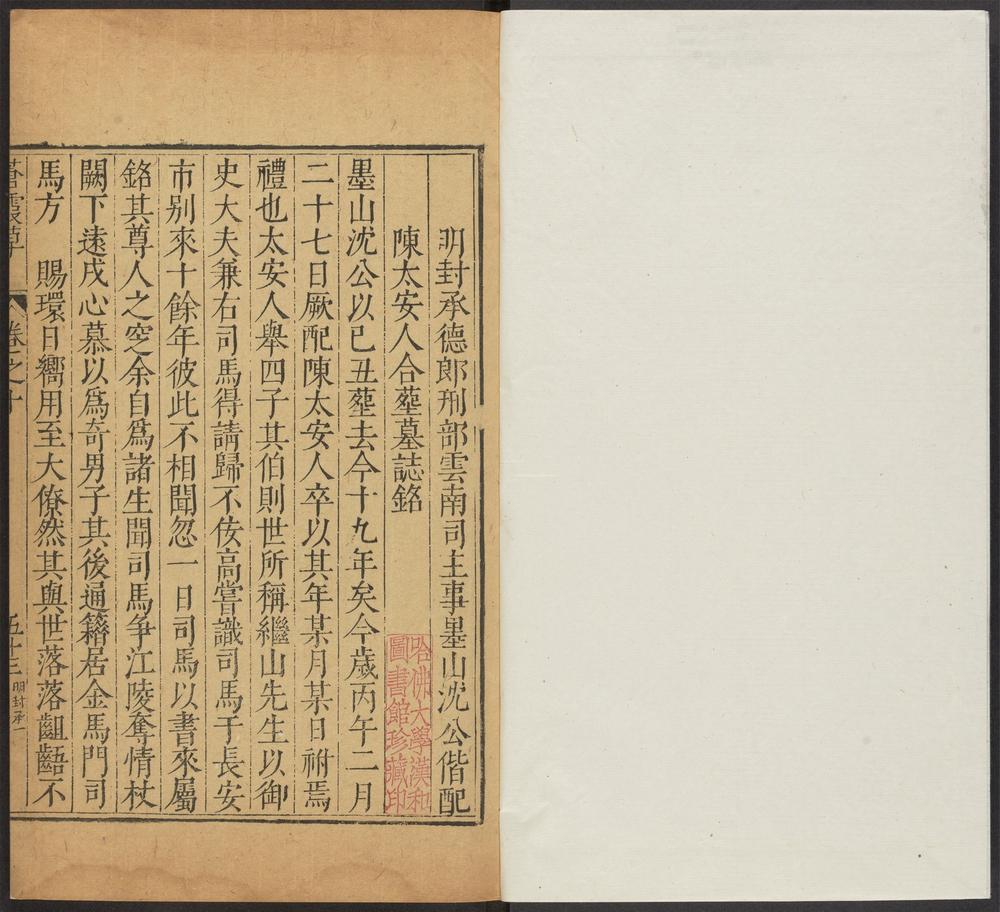 明封承德郎刑部雲南司主事墨山沈公偕配
陳太安人合塟墓誌銘
墨山沈公以已丑塟去今十九年矣今歲丙午二月
二十七日厥配陳太安人卒以其年某月某日祔焉
禮也太安人舉四子其伯則世所稱繼山先生以御
史大夫兼右司馬得請歸不侫高嘗識司馬于長安
市别來十餘年彼此不相聞忽一日司馬以書來屬
銘其尊人之窆余自爲諸生聞司馬爭江陵奪情杖
闕下遠戍心慕以爲奇男子其後通籍居金馬門司
馬方　賜環日嚮用至大僚然其與世落落齟齬不
卷之十
五十三
明封承一
哈佛大學漢和
圖書館珍藏印